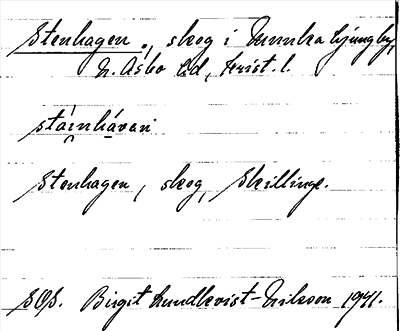 Stenhagen, skog i Munka Ljungby,
N. Åsbo hd, Krist. l.
stáinhávan
Stenhagen, skog, Skillinge.
SOS. Birgit Lundkvist-Nilsson 1941.